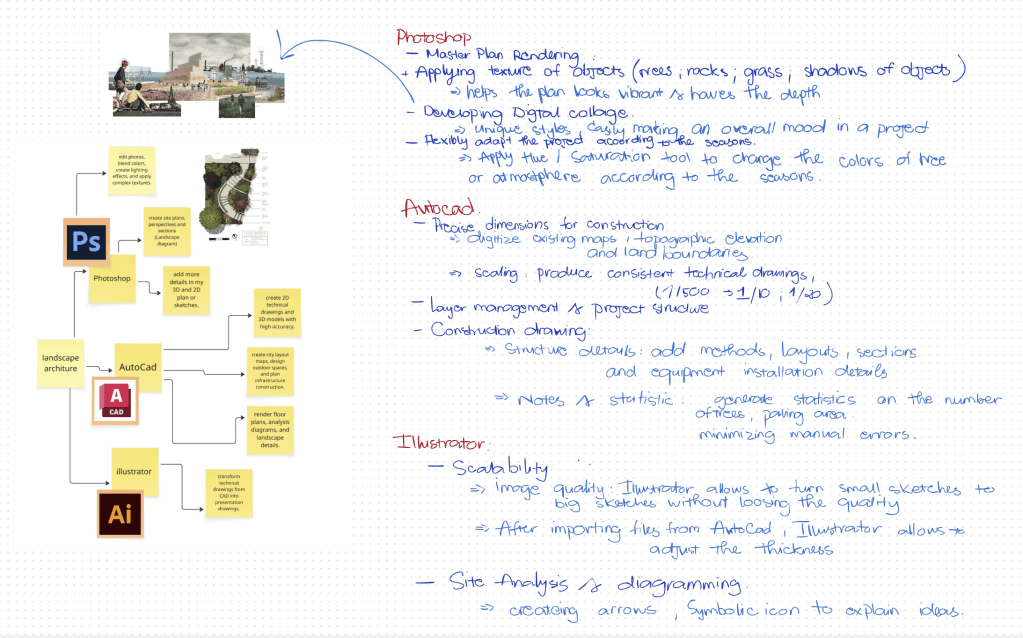 edit photos,
blend colors,
create lighting
effects, and apply
complex textures.
Ps
Photoshop
create site plans,
perspectives and
sections
(Landscape
diagram)
add more
details in my
3D and 2D
plan or
sketches.
landscape
architure
AutoCad
A
CAD
create 2D
technical
drawings and
3D models with
high accuracy.
create city layout
maps, design
outdoor spaces,
and plan
infrastructure
construction.
render floor
plans, analysis
diagrams, and
landscape
details.
illustrator
Ai
transform
technical
drawings from
CAD into
presentation
drawings.
Photoshop
- Master Plan Rendering :
+ Applying texture of objects (trees, rocks, grass, shadows of objects)
=> helps the plan looks vibrant & haves the depth
- Developing Digital collage.
=> Unique styles, easily making an overall mood in a project
- Flexibly adapt the project according to the seasons.
=> Apply Hue / Saturation tool to change the colors of tree
or atmostphere according to the seasons.
Autocad.
- Precise dimensions for construction
=> digitize existing maps, topographic elevation
and land boundaries
=> scaling : produce consistent technical drawings,
(1/500 → 1/10 ; 1/20)
- Layer management & project structure
- Construction drawing:
=> Structure details: add methods, layouts, sections
and equipment installation details
=> Notes & statistic : generate statistics on the number
of trees, paving area.
minimizing manual errors.
Illustrator.
- Scalability
=> image quality: Illustrator allows to turn small sketches to
big sketches without loosing the quality
=> After importing files from AutoCad, Illustrator allows to
adjust the thickness
- Site Analysis & diagramming.
=> createing arrows, Symbolic icon to explain ideas.